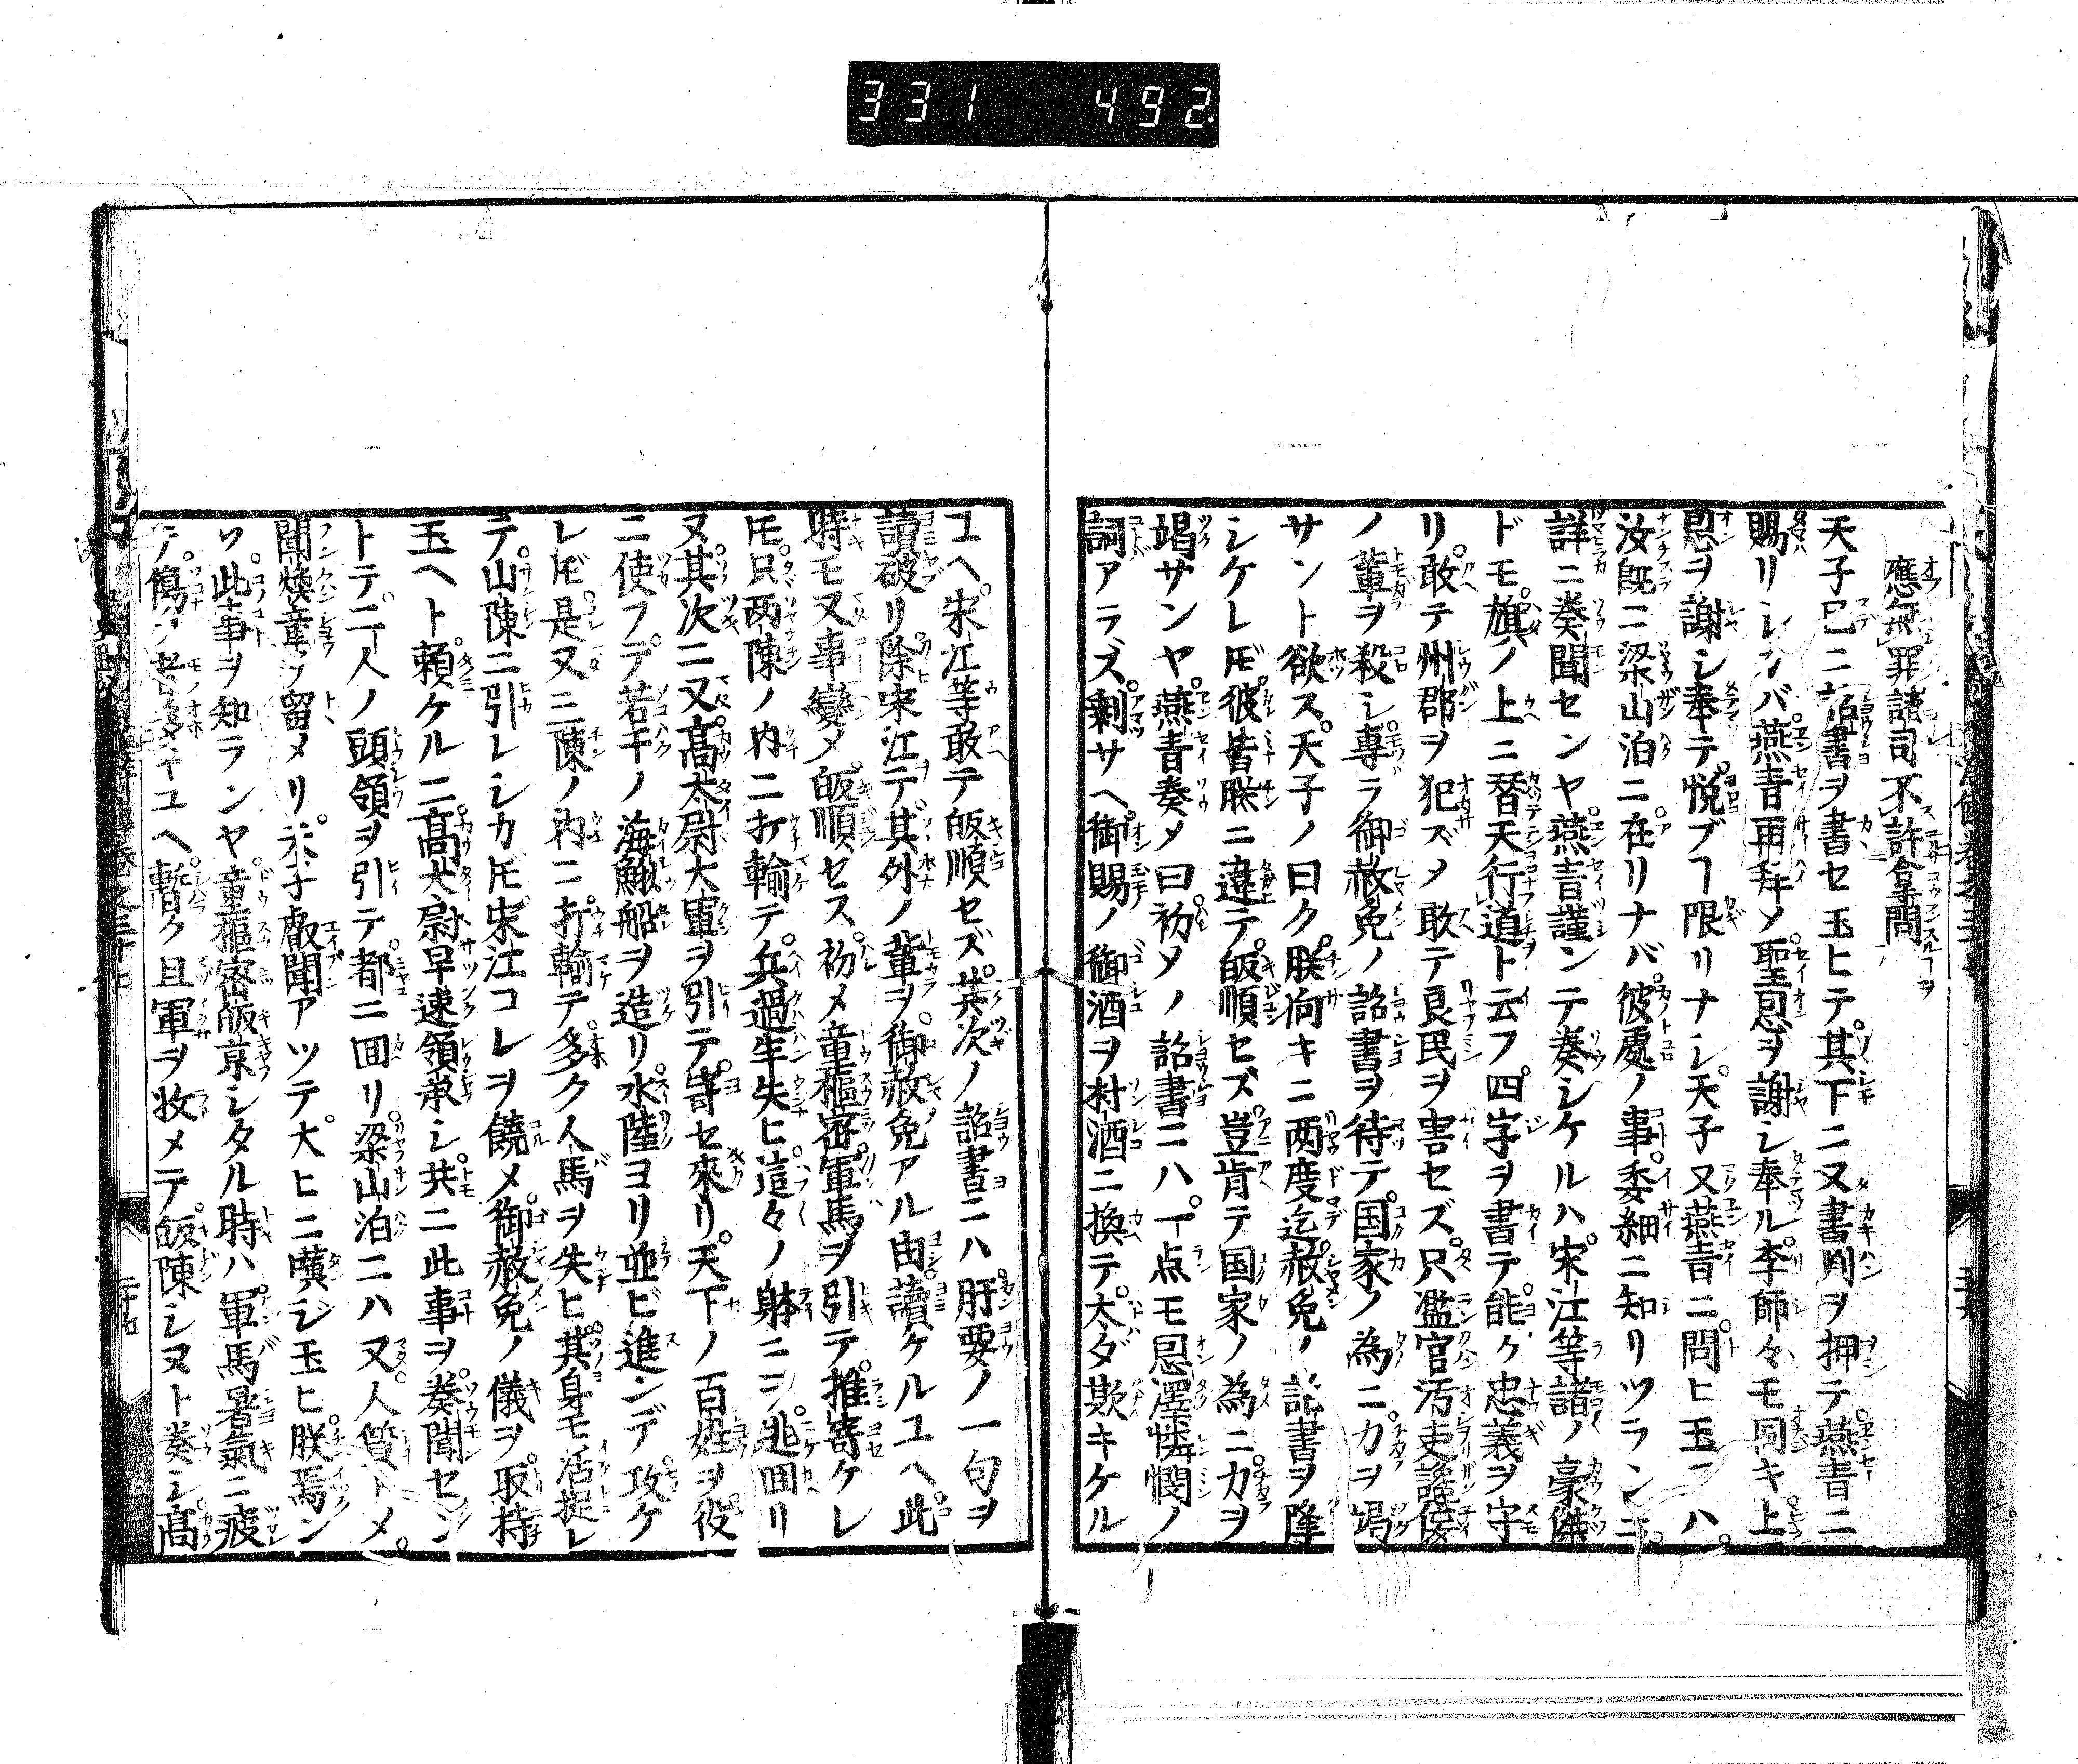 331 492
應無罪諸司不許拿問
天子已ニ詔書ヲ書セ玉ヒテ其下ニ又書判ヲ押テ燕青ニ
賜リシカバ燕青再拜メ聖恩ヲ謝シ奉ル李師々モ同キ上
恩ヲ謝シ奉テ悦ブヿ限リナシ天子又燕青ニ問ヒ玉フハ
汝既ニ梁山泊ニ在リナバ彼處ノ事委細ニ知リツラン
詳ニ奏聞センヤ燕青謹ンテ奏シケルハ宋江等諸ノ豪傑
ドモ旗ノ上ニ替天行道ト云フ四字ヲ書テ能ク忠義ヲ守
リ敢テ州郡ヲ犯ズメ敢テ良民ヲ害セズ只濫官汚吏讒佞
ノ輩ヲ殺シ專ラ御赦免ノ詔書ヲ待テ国家ノ為ニ力ヲ竭
サント欲ス天子ノ曰ク朕向キニ两度迄赦免ノ詔書ヲ降
シケレ𪜈彼皆朕ニ違テ皈順セズ豈肯テ国家ノ為ニ力ヲ
竭サンヤ燕青奏メ曰初メノ詔書ニハ一点モ恩澤憐憫ノ
詞アラズ剰サヘ御賜ノ御酒ヲ村酒ニ換テ太ダ欺キケル
ユヘ宋江等敢テ皈順セズ其次ノ詔書ニハ肝要ノ一句ヲ
讀破リ除宋江テ其外ノ輩ヲ御赦免アル由讀ケルユヘ此
時モ又事變メ皈順セス初メ童樞密軍馬ヲ引テ推寄ケレ
𪜈只两陳ノ内ニ打輸テ兵過半失ヒ這々ノ躰ニシ逃回リ
ヌ其次ニ又高太尉大軍ヲ引テ寄セ來リ天下ノ百姓ヲ役
ニ使フテ若干ノ海鰍船ヲ造リ水陸ヨリ並ビ進ンデ攻ケ
レ𪜈是又三陳ノ内ニ打輸テ多ク人馬ヲ失ヒ其身モ活捉レ
テ山陳ニ引レシカ𪜈宋江コレヲ饒メ御赦免ノ儀ヲ取持
玉ヘト頼ケルニ高太尉早速領承シ共ニ此事ヲ奏聞セン
トテ二人ノ頭領ヲ引テ都ニ回リ梁山泊ニハ又人質トメ
聞煥章ヲ留メリ天子叡聞アツテ大ヒニ嘆ジ玉ヒ朕焉ン
ソ此事ヲ知ランヤ童樞密皈京シタル時ハ軍馬暑氣ニ疲
テ傷ノ ユヘ暫ク且軍ヲ收メテ皈陳シヌト奏シ高